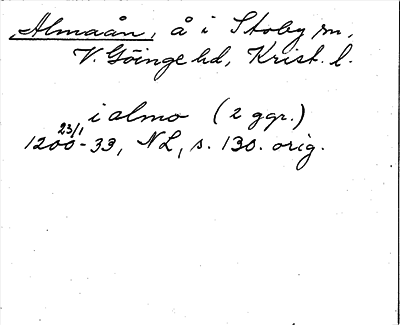 Almaån, å i Stoby sn,
V. Göinge hd, Krist. l.
i almo (2 ggr.)
23/1
1200-39, NL, s. 130. orig.